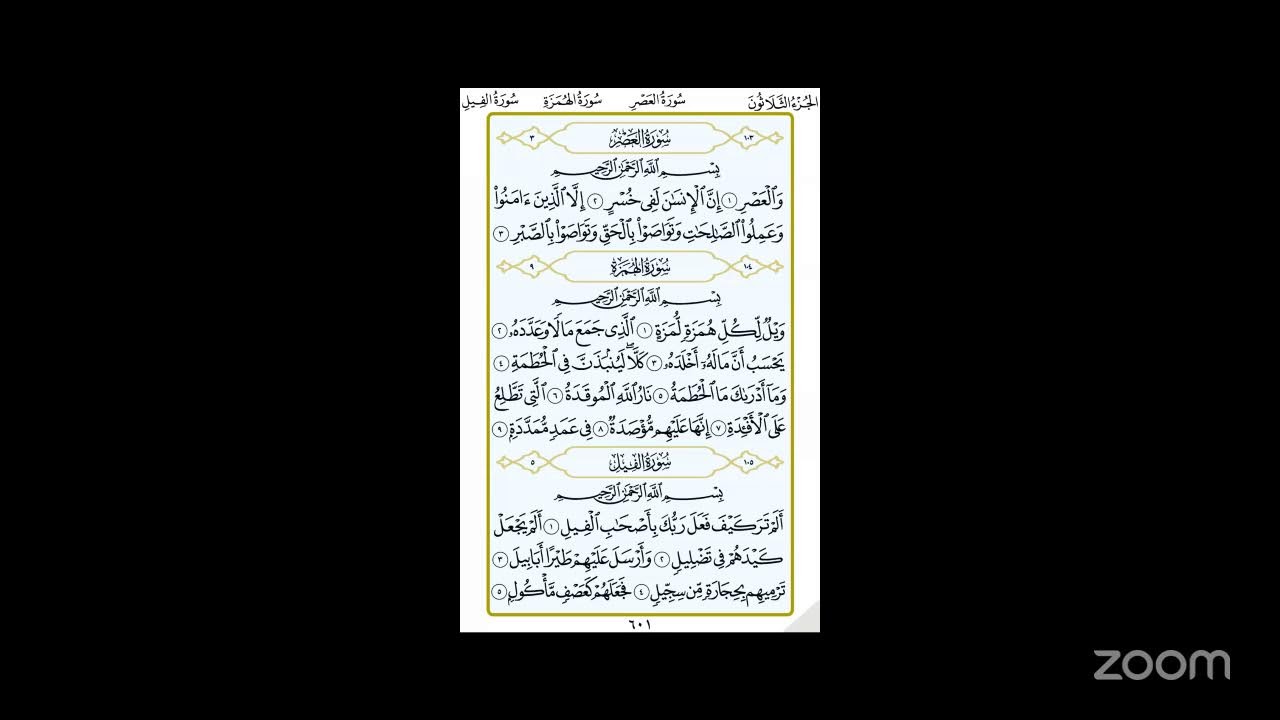 الجُزْءُ الثَّلَاثُونَ سُورَةُ العَصْرِ سُورَةُ الهُمَزَةِ سُورَةُ الفِيلِ
١٠٣ سُورَةُ العَصْرِ ٣
بِسْمِ ٱللَّهِ ٱلرَّحْمَٰنِ ٱلرَّحِيمِ
وَٱلْعَصْرِ ١ إِنَّ ٱلْإِنسَٰنَ لَفِى خُسْرٍ ٢ إِلَّا ٱلَّذِينَ ءَامَنُوا۟
وَعَمِلُوا۟ ٱلصَّٰلِحَٰتِ وَتَوَاصَوْا۟ بِٱلْحَقِّ وَتَوَاصَوْا۟ بِٱلصَّبْرِ ٣
١٠٤ سُورَةُ الهُمَزَةِ ٩
بِسْمِ ٱللَّهِ ٱلرَّحْمَٰنِ ٱلرَّحِيمِ
وَيْلٌ لِّكُلِّ هُمَزَةٍ لُّمَزَةٍ ١ ٱلَّذِى جَمَعَ مَالًا وَعَدَّدَهُۥ ٢
يَحْسَبُ أَنَّ مَالَهُۥٓ أَخْلَدَهُۥ ٣ كَلَّا ۖ لَيُنۢبَذَنَّ فِى ٱلْحُطَمَةِ ٤
وَمَآ أَدْرَىٰكَ مَا ٱلْحُطَمَةُ ٥ نَارُ ٱللَّهِ ٱلْمُوقَدَةُ ٦ ٱلَّتِى تَطَّلِعُ
عَلَى ٱلْأَفْـِٔدَةِ ٧ إِنَّهَا عَلَيْهِم مُّؤْصَدَةٌ ٨ فِى عَمَدٍ مُّمَدَّدَةٍۭ ٩
١٠٥ سُورَةُ الفِيلِ ٥
بِسْمِ ٱللَّهِ ٱلرَّحْمَٰنِ ٱلرَّحِيمِ
أَلَمْ تَرَ كَيْفَ فَعَلَ رَبُّكَ بِأَصْحَٰبِ ٱلْفِيلِ ١ أَلَمْ يَجْعَلْ
كَيْدَهُمْ فِى تَضْلِيلٍ ٢ وَأَرْسَلَ عَلَيْهِمْ طَيْرًا أَبَابِيلَ ٣
تَرْمِيهِم بِحِجَارَةٍ مِّن سِجِّيلٍ ٤ فَجَعَلَهُمْ كَعَصْفٍ مَّأْكُولٍۭ ٥
٦٠١
zoom